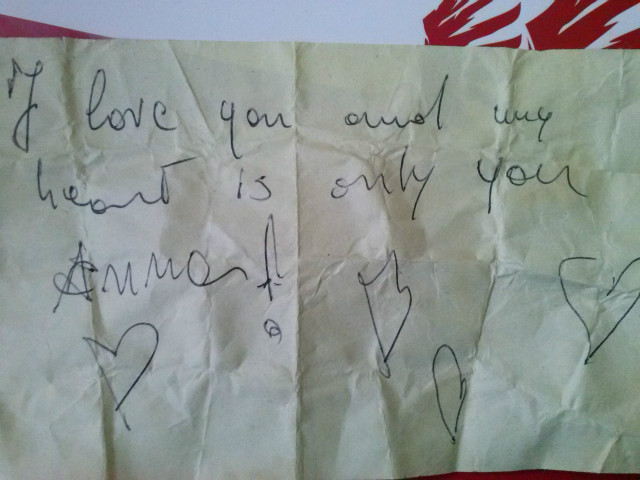 I love you and my
heart is only you
Anna!